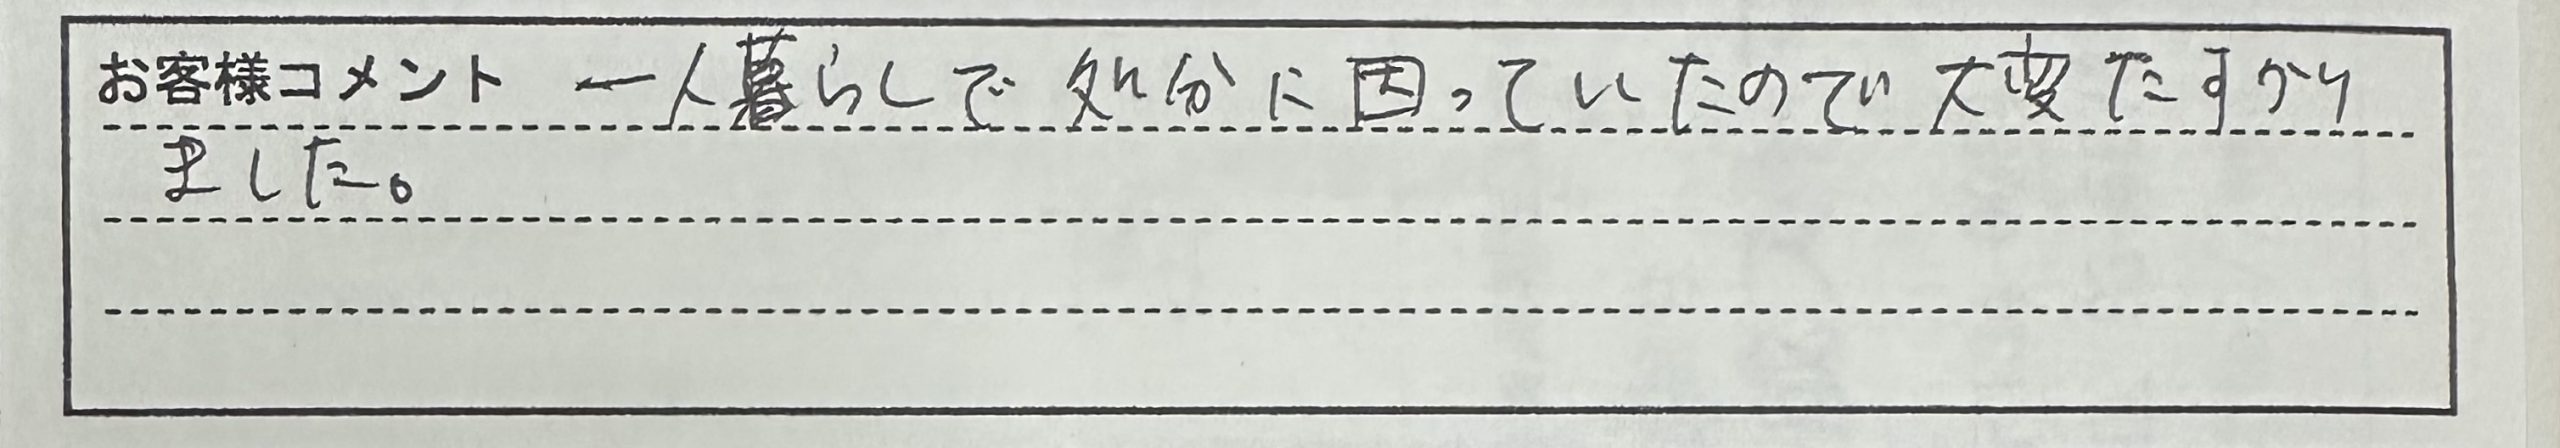 お客様コメント 一人暮らしで処分に困っていたので大変たすかり
ました。